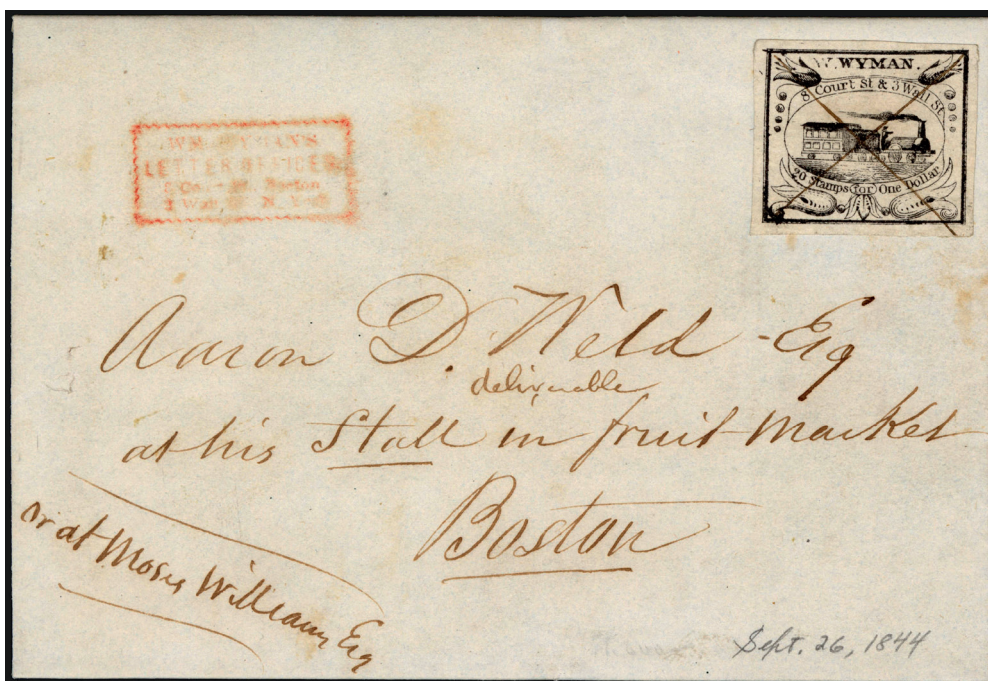 W. WYMAN.
8 Court St & 3 Wall St.
20 Stamps for One Dollar
WM. WYMAN'S
LETTER OFFICES
8 Court St. Boston
3 Wall St. N. York
Aaron D. Weld - Esq
deliverable
at his Stall in fruit Market
Boston
or at Moses Williams Esq
Sept. 26, 1844